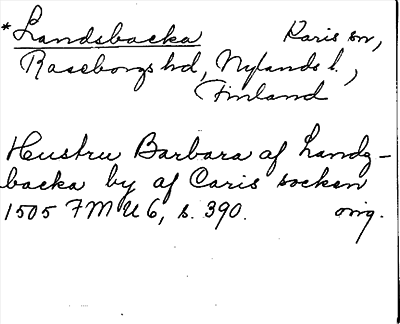 *Landsbacka Karis sn,
Raseborgs hd, Nylands l.,
Finland
Hustru Barbara af Landz-
backa by af Caris socken
1505 FMU 6, s. 390. orig.